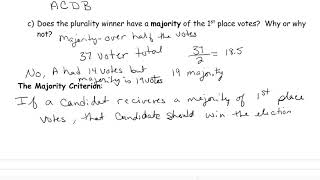 ACDB
c) Does the plurality winner have a majority of the 1st place votes? Why or why
not? majority-over half the votes
37 voter total 37/2 = 18.5
No, A had 14 votes but
majority is 19 votes 19 majority
The Majority Criterion:
If a candidat reciveres a majority of 1st place
votes, that candidate should win the election